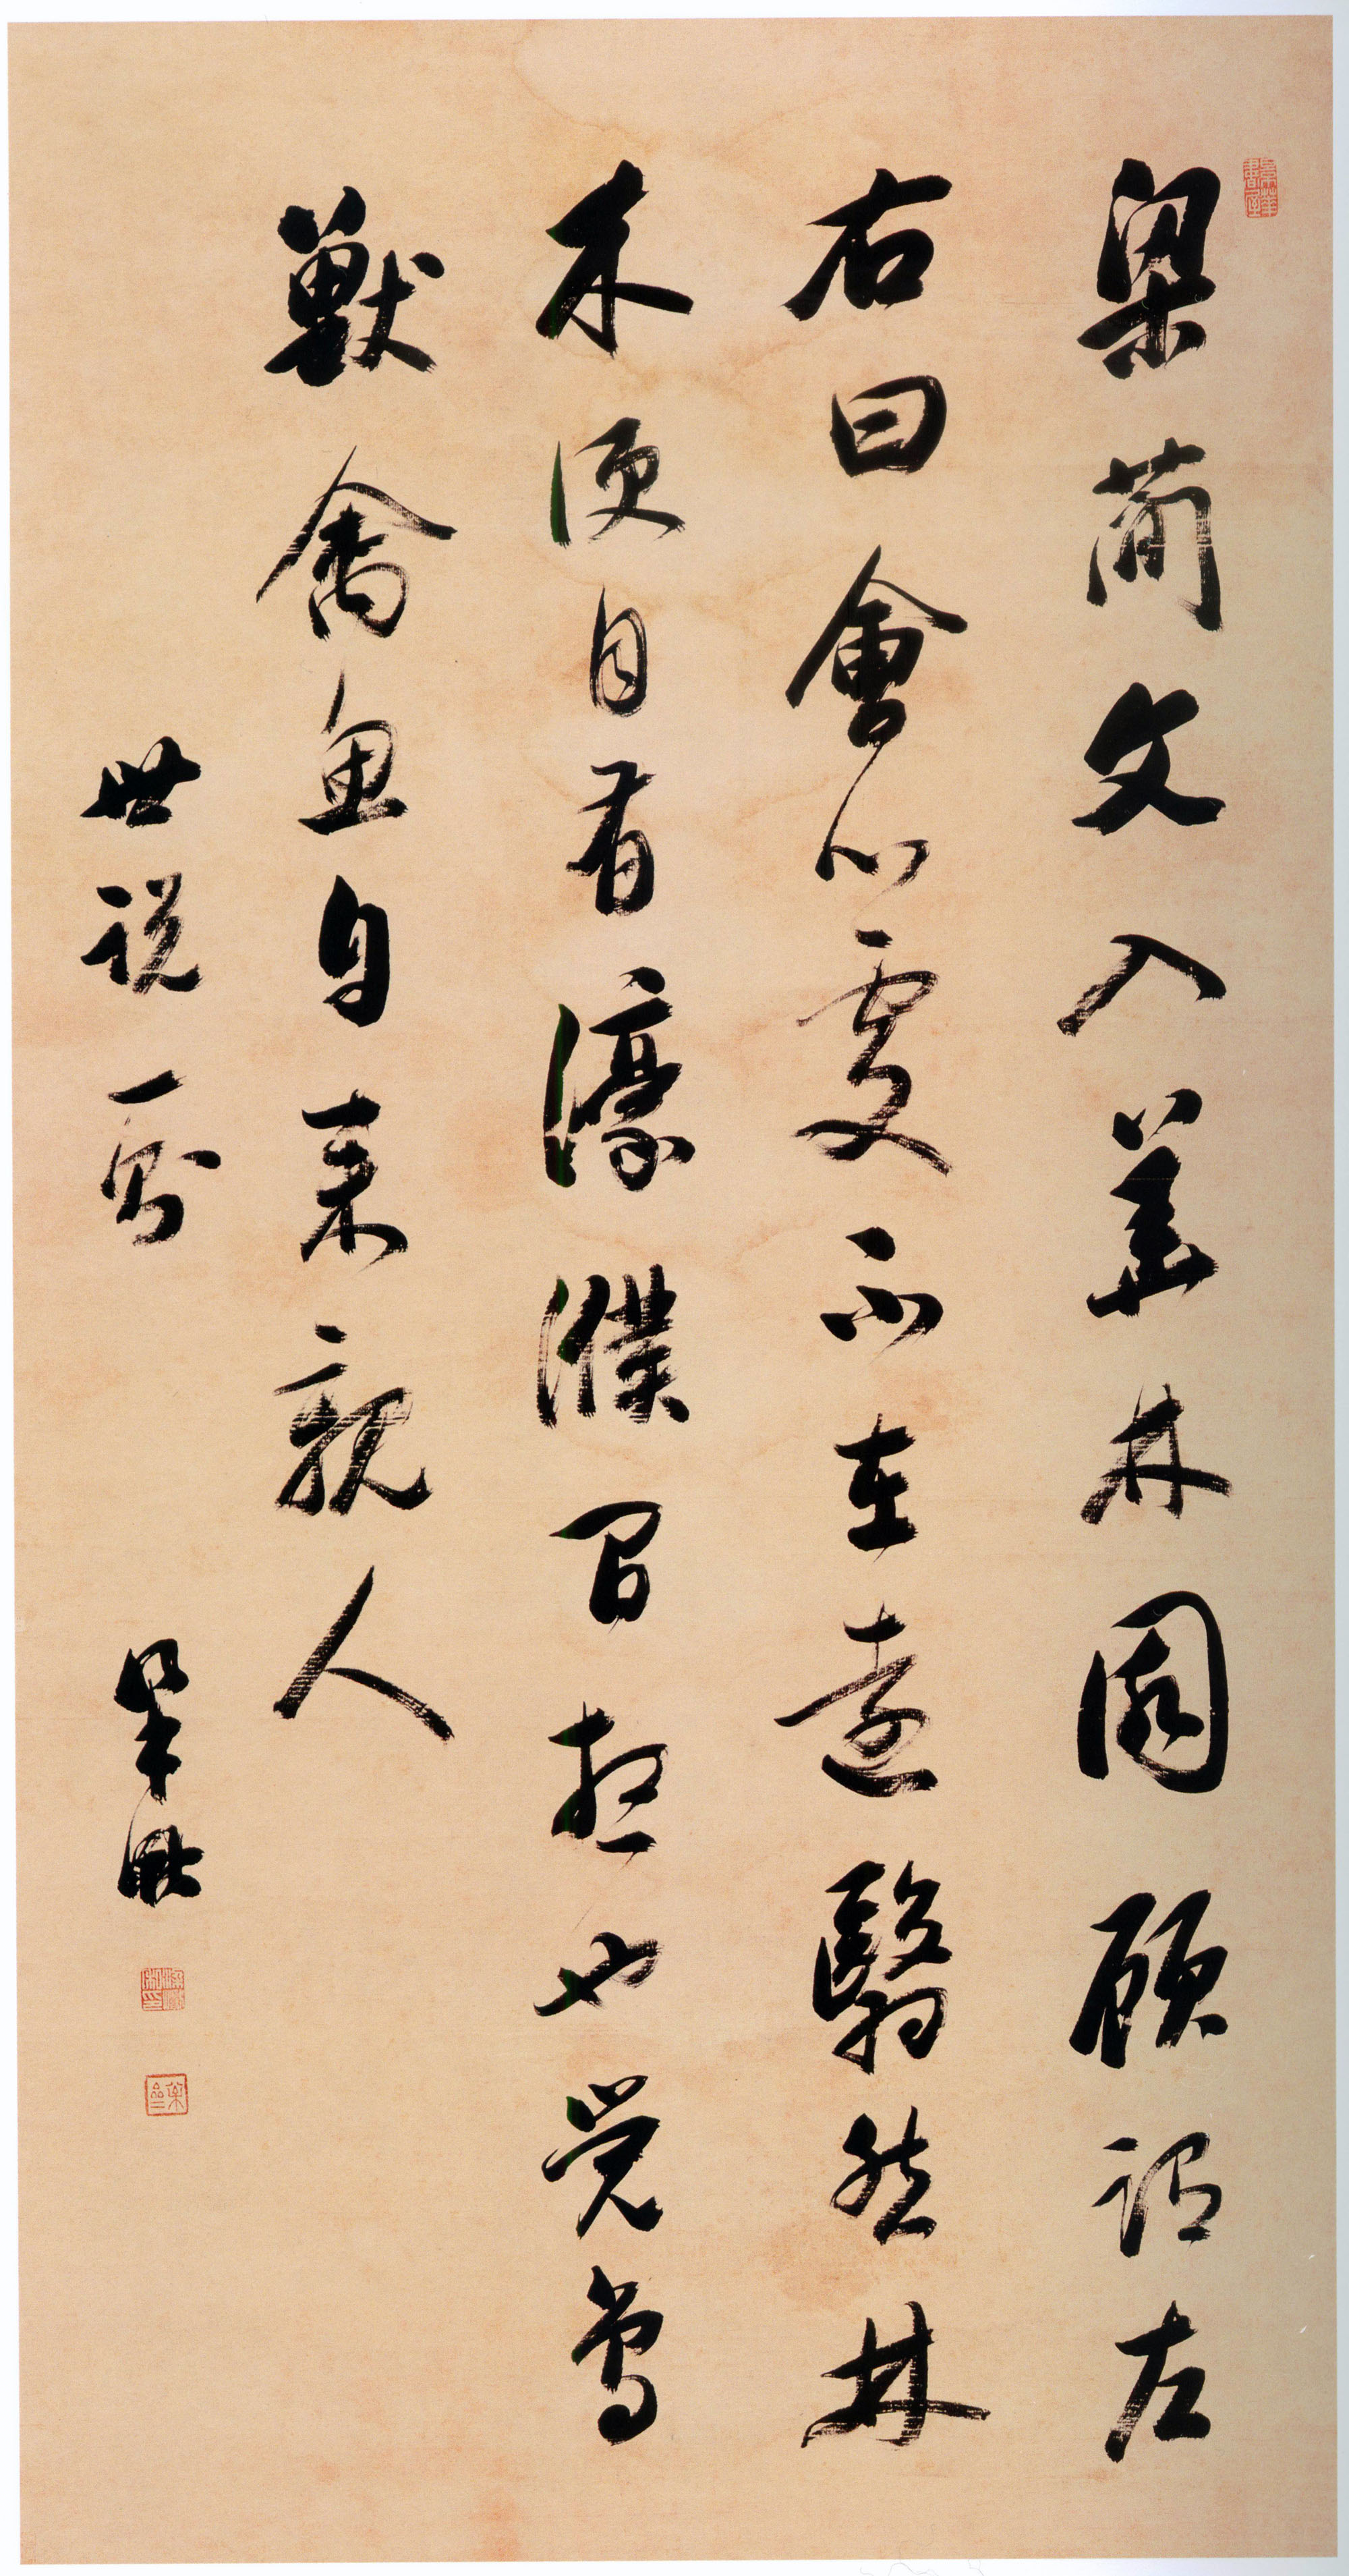 梁簡文入華林園顧謂左
右曰會心處不在遠翳然林
木便自有濠濮間想也覺鳥
獸禽魚自來親人
世說一則 梁巘